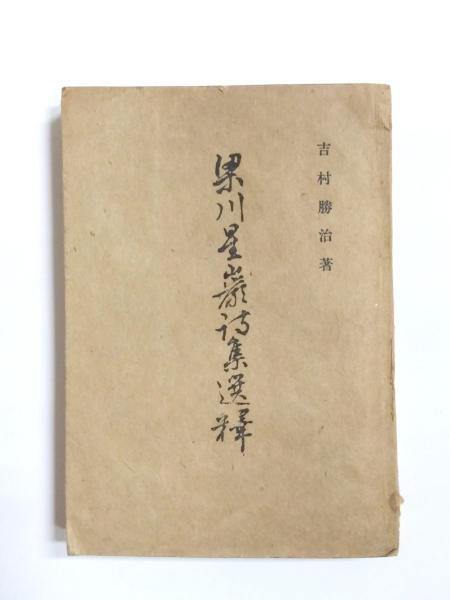 吉村勝治著
梁川星巖詩集選釋